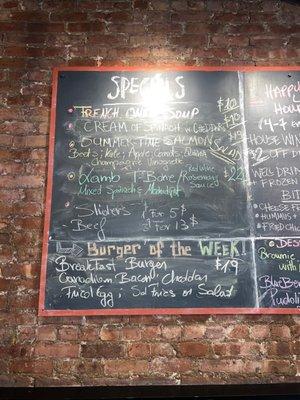 SPECIALS
FRENCH ONION SOUP $10
CREAM OF SPINACH w CHEDDAR $10
SUMMER-TIME SALMON SALAD $19
Beets, Kale, Apple, Carrots,
Champagne Vinaigrette
Lamb T-Bone / Red Wine Rosemary Sauce $22
Mixed Spinach &
Sliders 1 For 5$
Beef 3 For 13$
Burger of the WEEK!
Breakfast Burger $19
Canadian Bacon, Cheddar
Fried Egg; Sd Fries or Salad
HAPPY
HOU
4-7
HOUSE WIN
$2 OFF
WELL DRIN
FROZEN
BIT
CHEESE FR
HUMMUS +
FRIED CHIC
DES
Brownie
BlueBer
Pudding